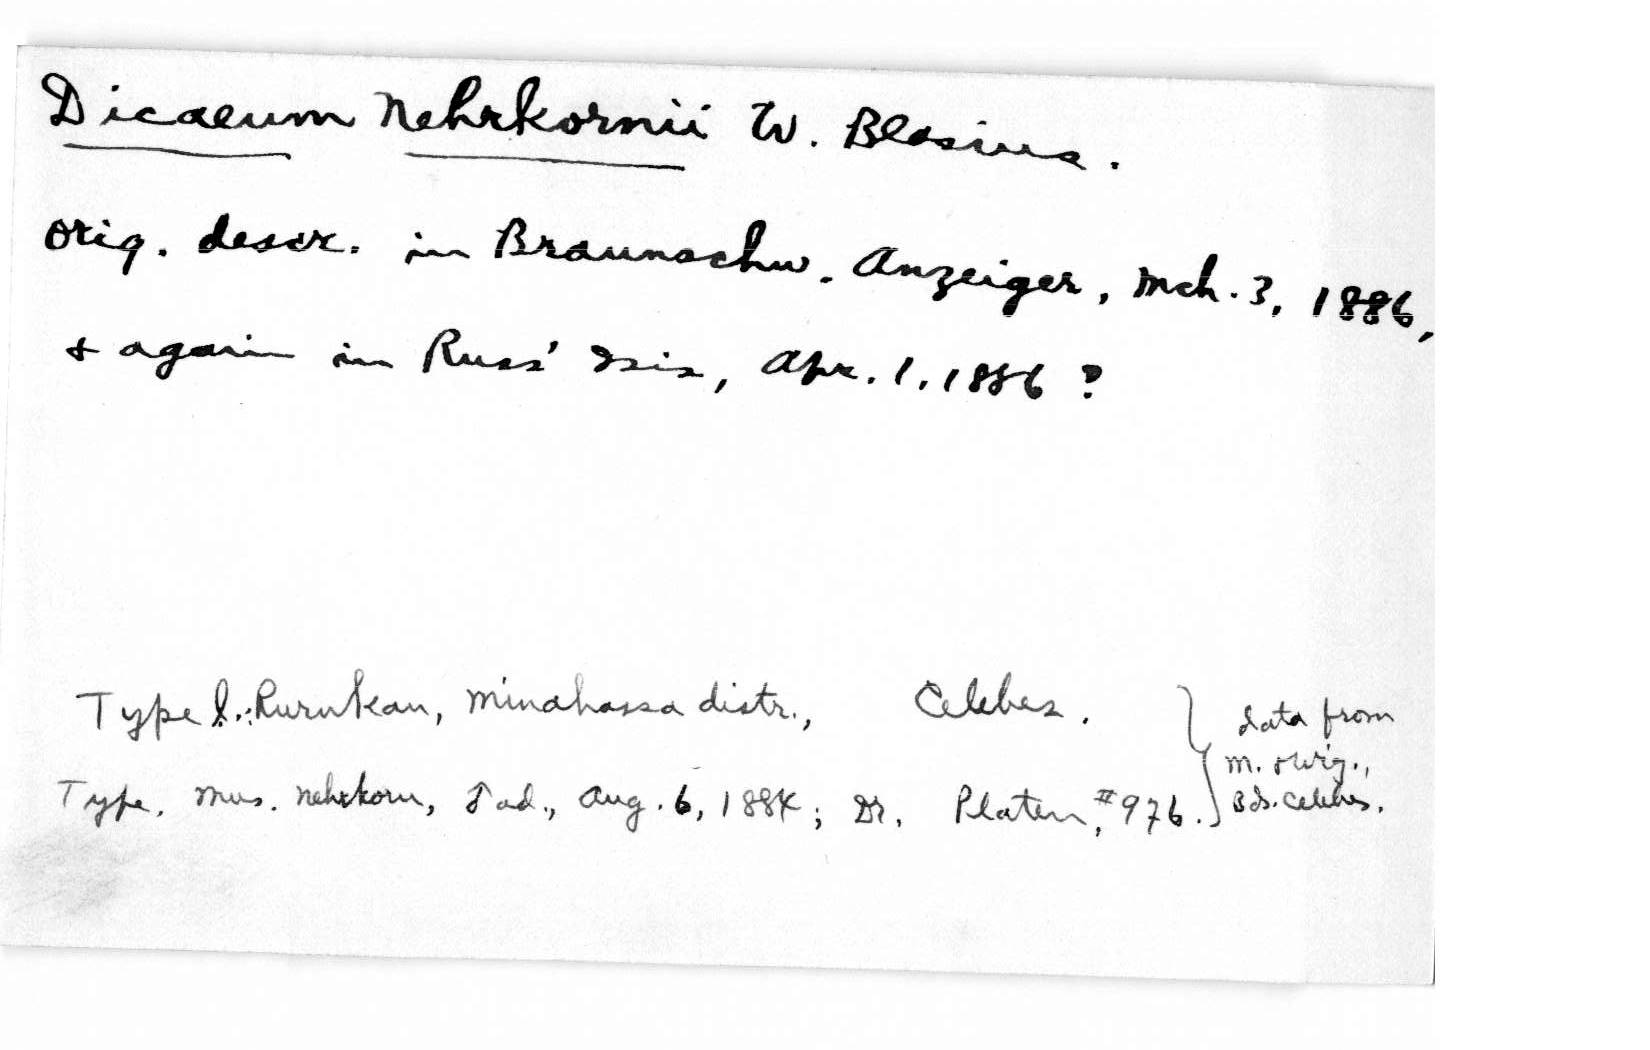 Dicaeum Nehrkornii W. Blasius.
Orig. descr. in Braunschw. Anzeiger, Mch. 3, 1886,
& again in Russ' Isis, Apr. 1, 1886 ?
Type l.: Rurukan, Minahassa distr., Celebes.
Type, Mus. Nehrkorn, ♂ ad., Aug. 6, 1884; Dr. Platen, #976.
data from
M. & Wig.,
Bds. Celebes.